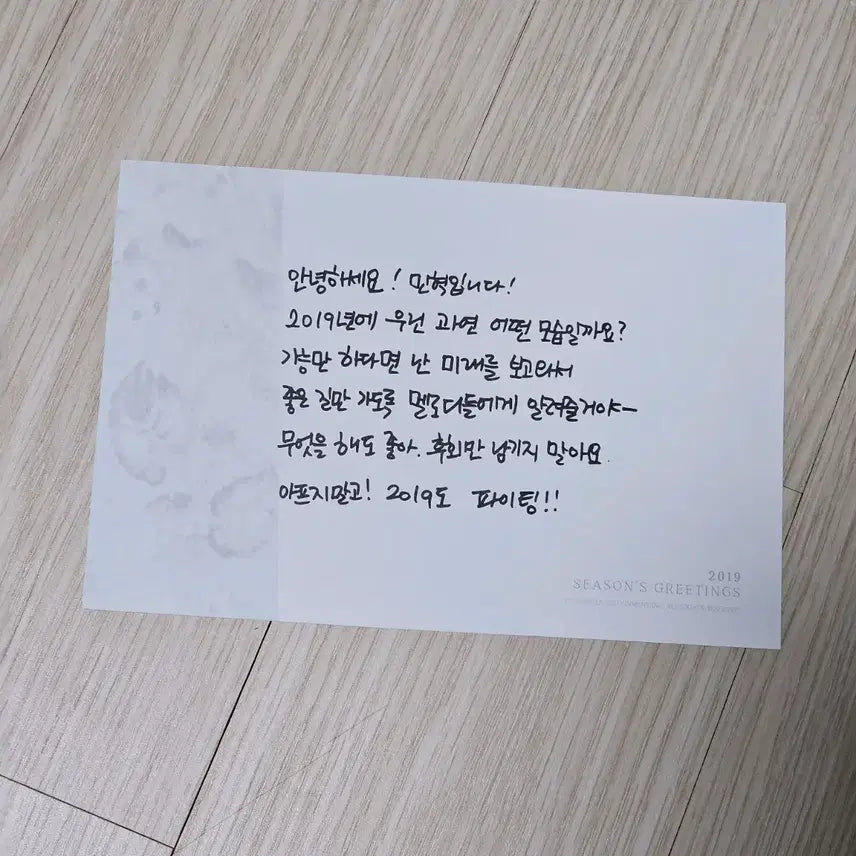 안녕하세요! 민혁입니다!
2019년에 우린 과연 어떤 모습일까요?
가능만 하다면 난 미래를 보고와서
좋은 길만 가도록 멜로디들에게 알려줄거야~
무엇을 해도 좋아. 후회만 남기지 말아요.
아프지말고! 2019도 파이팅!!
2019
SEASON'S GREETINGS